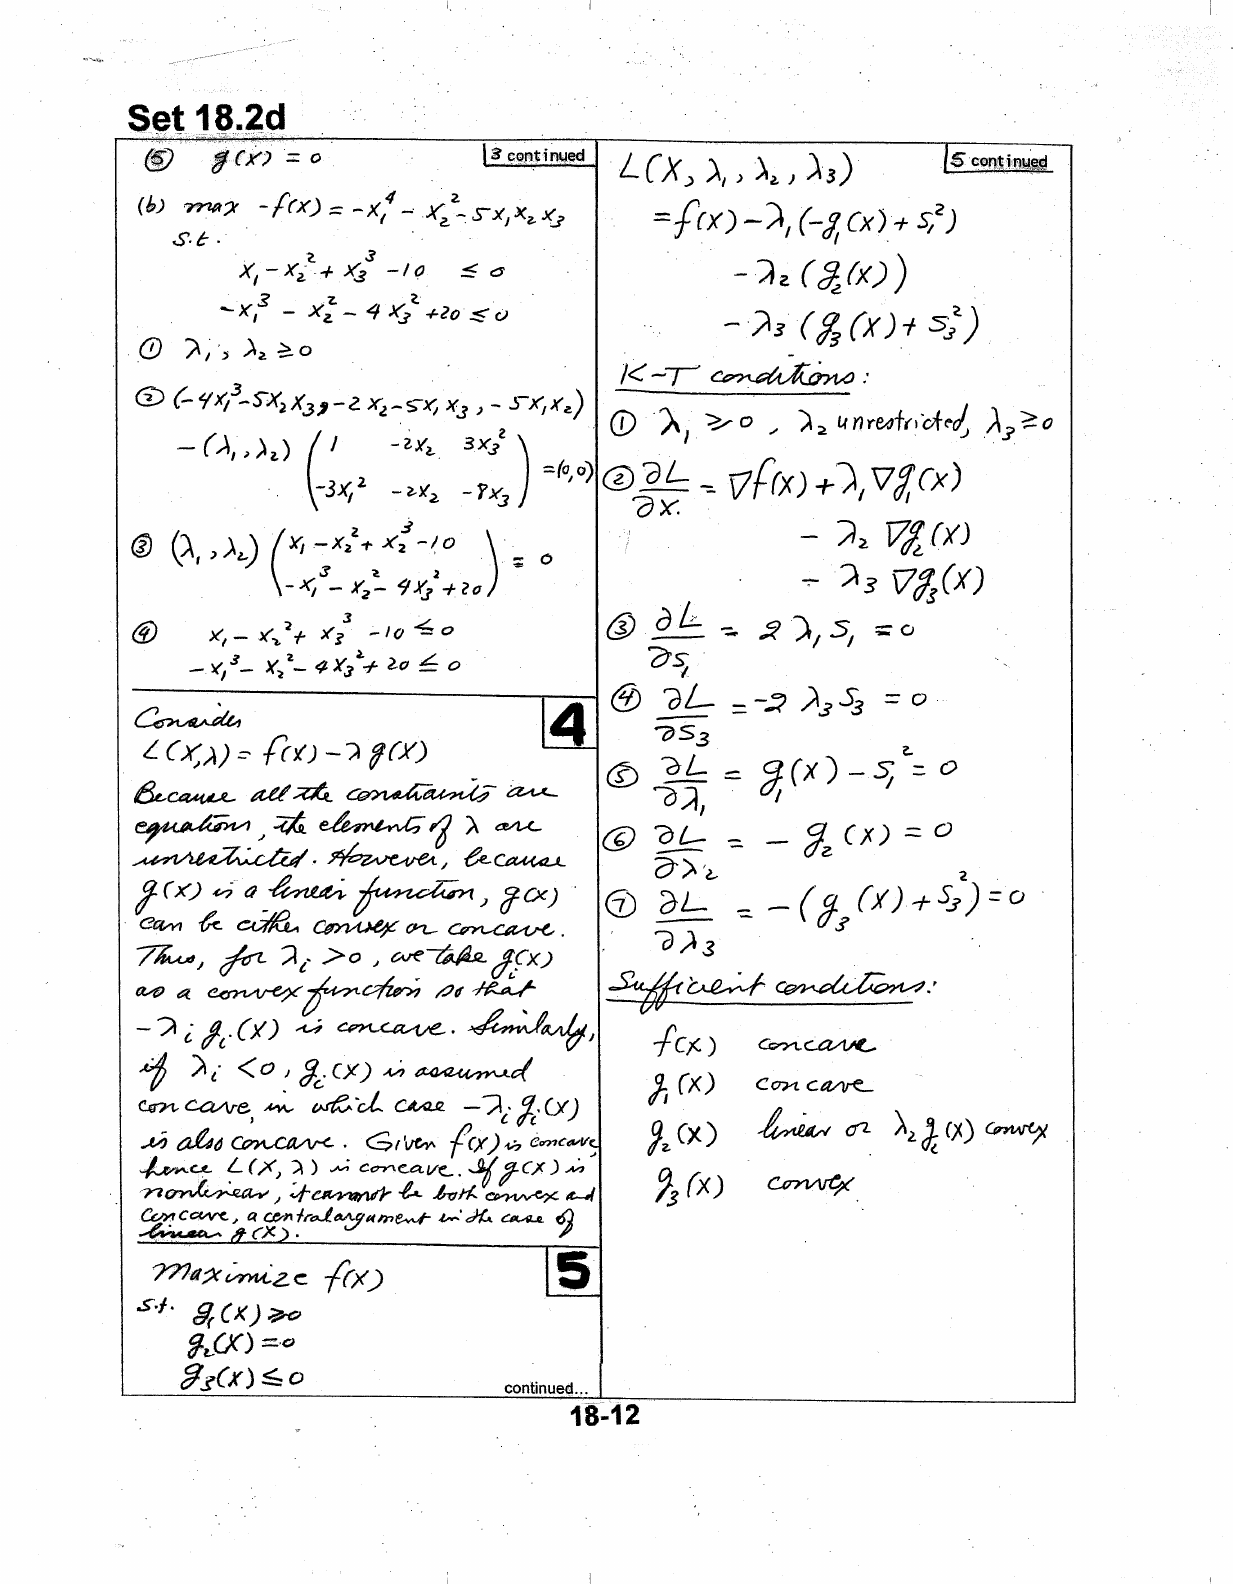 Set 18.2d
3 continued
⑤ g(X) = 0
(b) max -f(X) = -x₁⁴ - x₂² - 5x₁x₂x₃
s.t.
x₁ - x₂² + x₃³ - 10 ≤ 0
-x₁³ - x₂² - 4x₃² + 20 ≤ 0
① λ₁, λ₂ ≥ 0
② (-4x₁³ - 5x₂x₃, -2x₂ - 5x₁x₃, -5x₁x₂)
- (λ₁, λ₂) ( 1 -2x₂ 3x₃²
-3x₁² -2x₂ -8x₃ ) = (0,0)
③ (λ₁, λ₂) ( x₁ - x₂² + x₂³ - 10
-x₁³ - x₂² - 4x₃² + 20 ) = 0
④ x₁ - x₂² + x₃³ - 10 ≤ 0
-x₁³ - x₂² - 4x₃² + 20 ≤ 0
4
Consider
L(X,λ) = f(X) - λ g(X)
Because all the constraints are
equations, the elements of λ are
unrestricted. However, because
g(X) is a linear function, g(X)
can be either convex or concave.
Thus, for λᵢ > 0, we take gᵢ(X)
as a convex function so that
-λᵢ gᵢ(X) is concave. Similarly,
if λᵢ < 0, gᵢ(X) is assumed
concave, in which case -λᵢ gᵢ(X)
is also concave. Given f(X) is concave,
hence L(X, λ) is concave. If g(X) is
nonlinear, it cannot be both convex and
concave, a central argument in the case of
linear g(X).
5
Maximize f(X)
s.t. g₁(X) ≥ 0
g₂(X) = 0
g₃(X) ≤ 0
continued...
5 continued
L(X, λ₁, λ₂, λ₃)
= f(X) - λ₁(-g₁(X) + S₁²)
- λ₂(g₂(X))
- λ₃(g₃(X) + S₃²)
K-T conditions:
① λ₁ ≥ 0, λ₂ unrestricted, λ₃ ≥ 0
② ∂L/∂X. = ∇f(X) + λ₁∇g₁(X)
- λ₂ ∇g₂(X)
- λ₃ ∇g₃(X)
③ ∂L/∂S₁ = 2λ₁S₁ = 0
④ ∂L/∂S₃ = -2 λ₃S₃ = 0
⑤ ∂L/∂λ₁ = g₁(X) - S₁² = 0
⑥ ∂L/∂λ₂ = - g₂(X) = 0
⑦ ∂L/∂λ₃ = -(g₃(X) + S₃²) = 0
Sufficient conditions:
f(X) concave
g₁(X) concave
g₂(X) linear or λ₂g₂(X) convex
g₃(X) convex
18-12